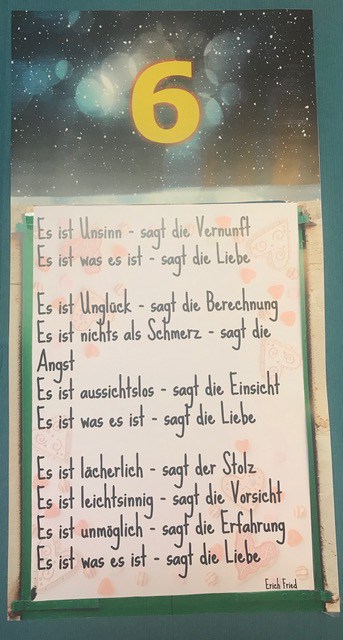 6
Es ist Unsinn - sagt die Vernunft
Es ist was es ist - sagt die Liebe
Es ist Unglück - sagt die Berechnung
Es ist nichts als Schmerz - sagt die
Angst
Es ist aussichtslos - sagt die Einsicht
Es ist was es ist - sagt die Liebe
Es ist lächerlich - sagt der Stolz
Es ist leichtsinnig - sagt die Vorsicht
Es ist unmöglich - sagt die Erfahrung
Es ist was es ist - sagt die Liebe
Erich Fried